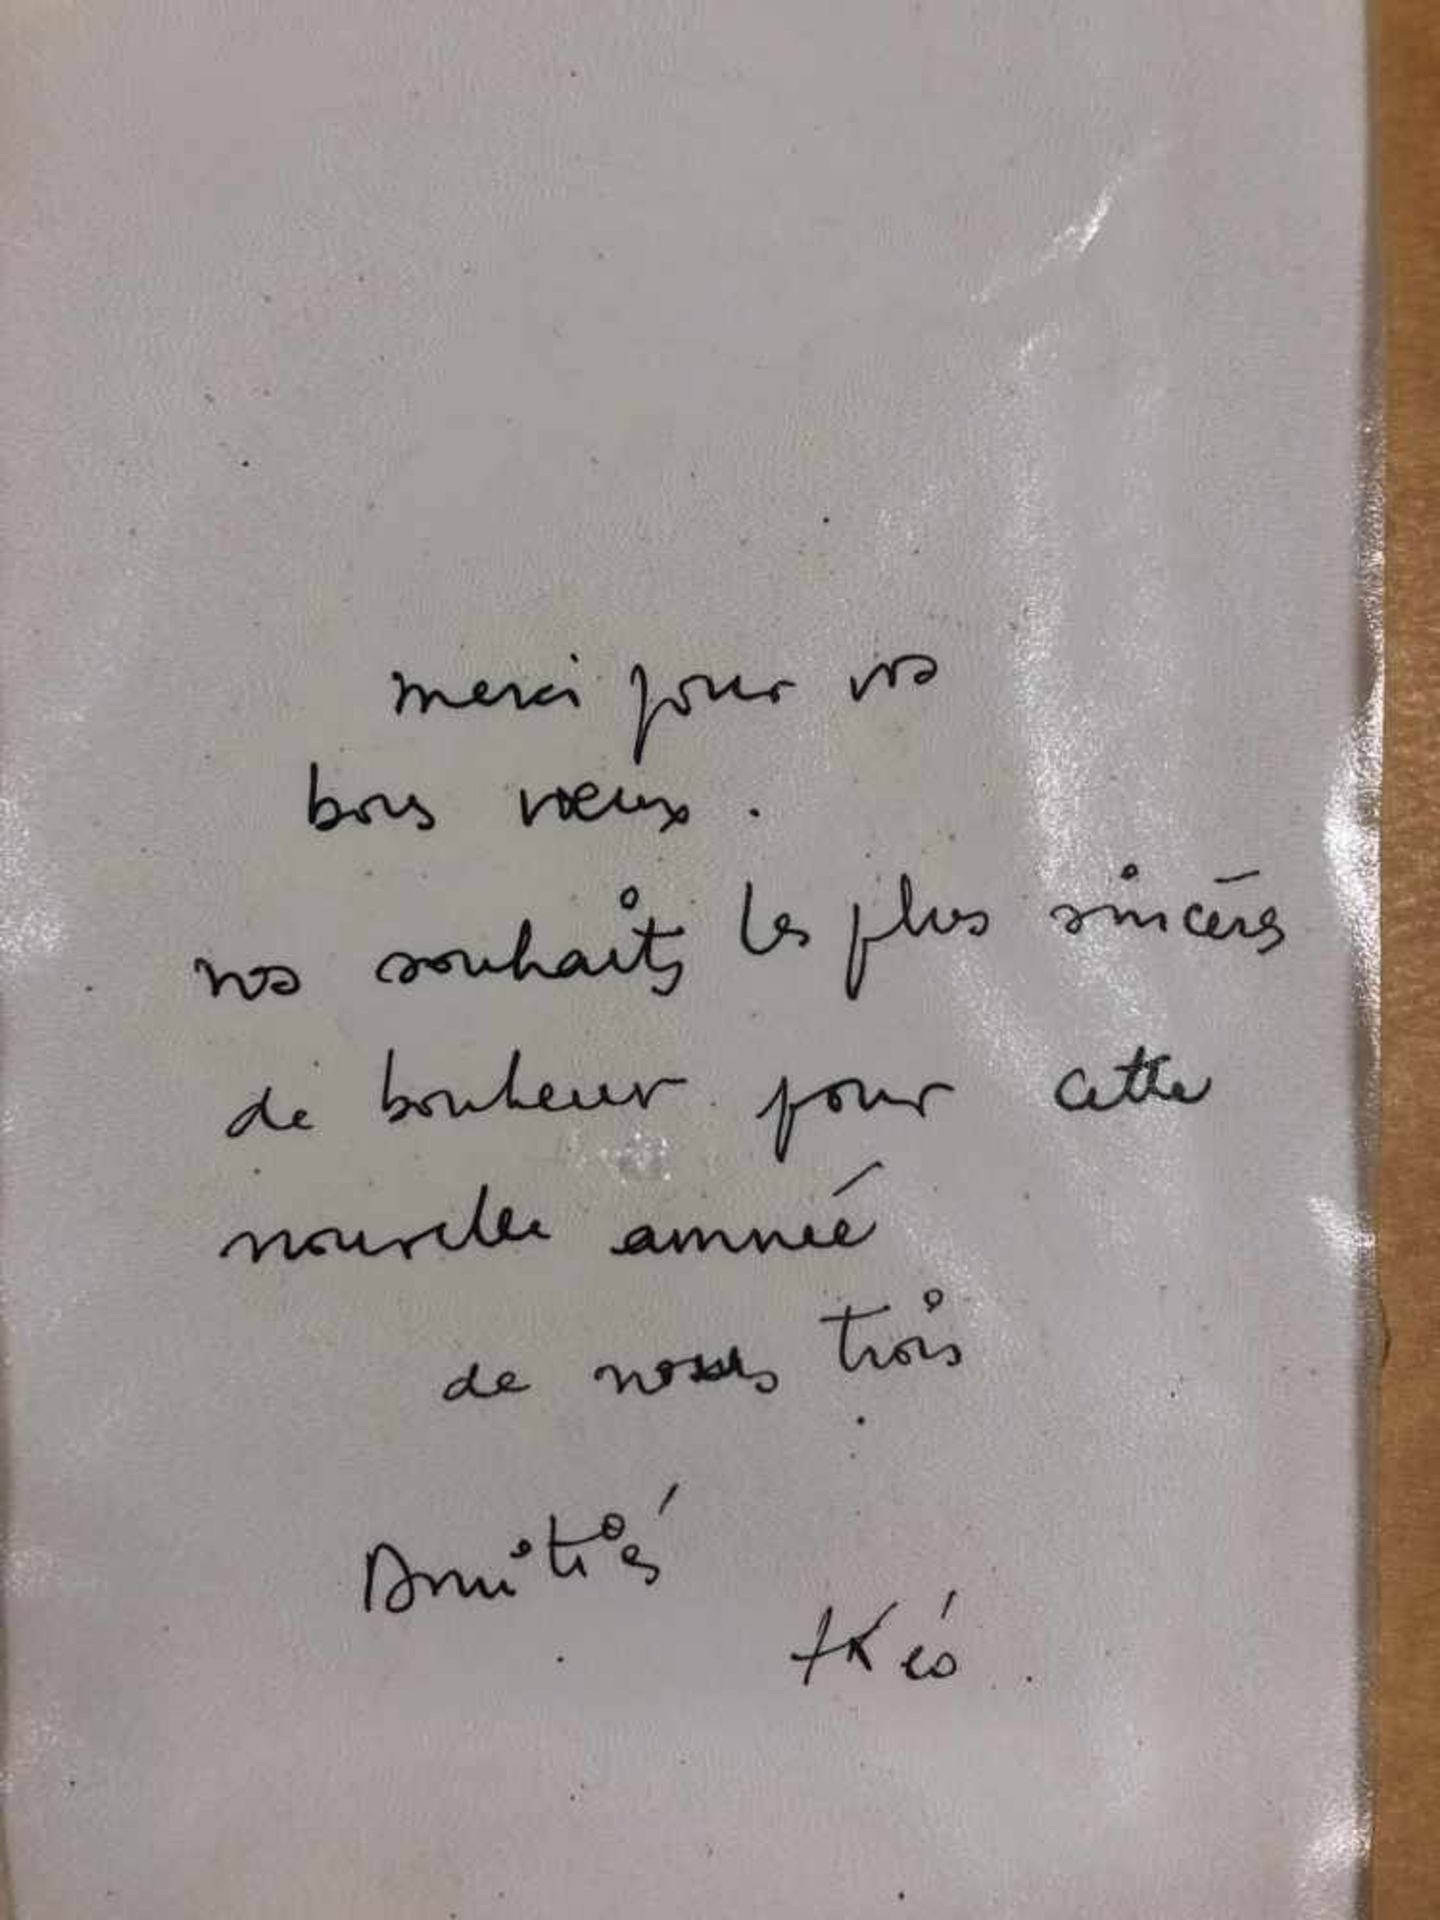 merci pour vos
bons vœux.
nos souhaits les plus sincères
de bonheur pour cette
nouvelle année
de nous trois
Amitiés